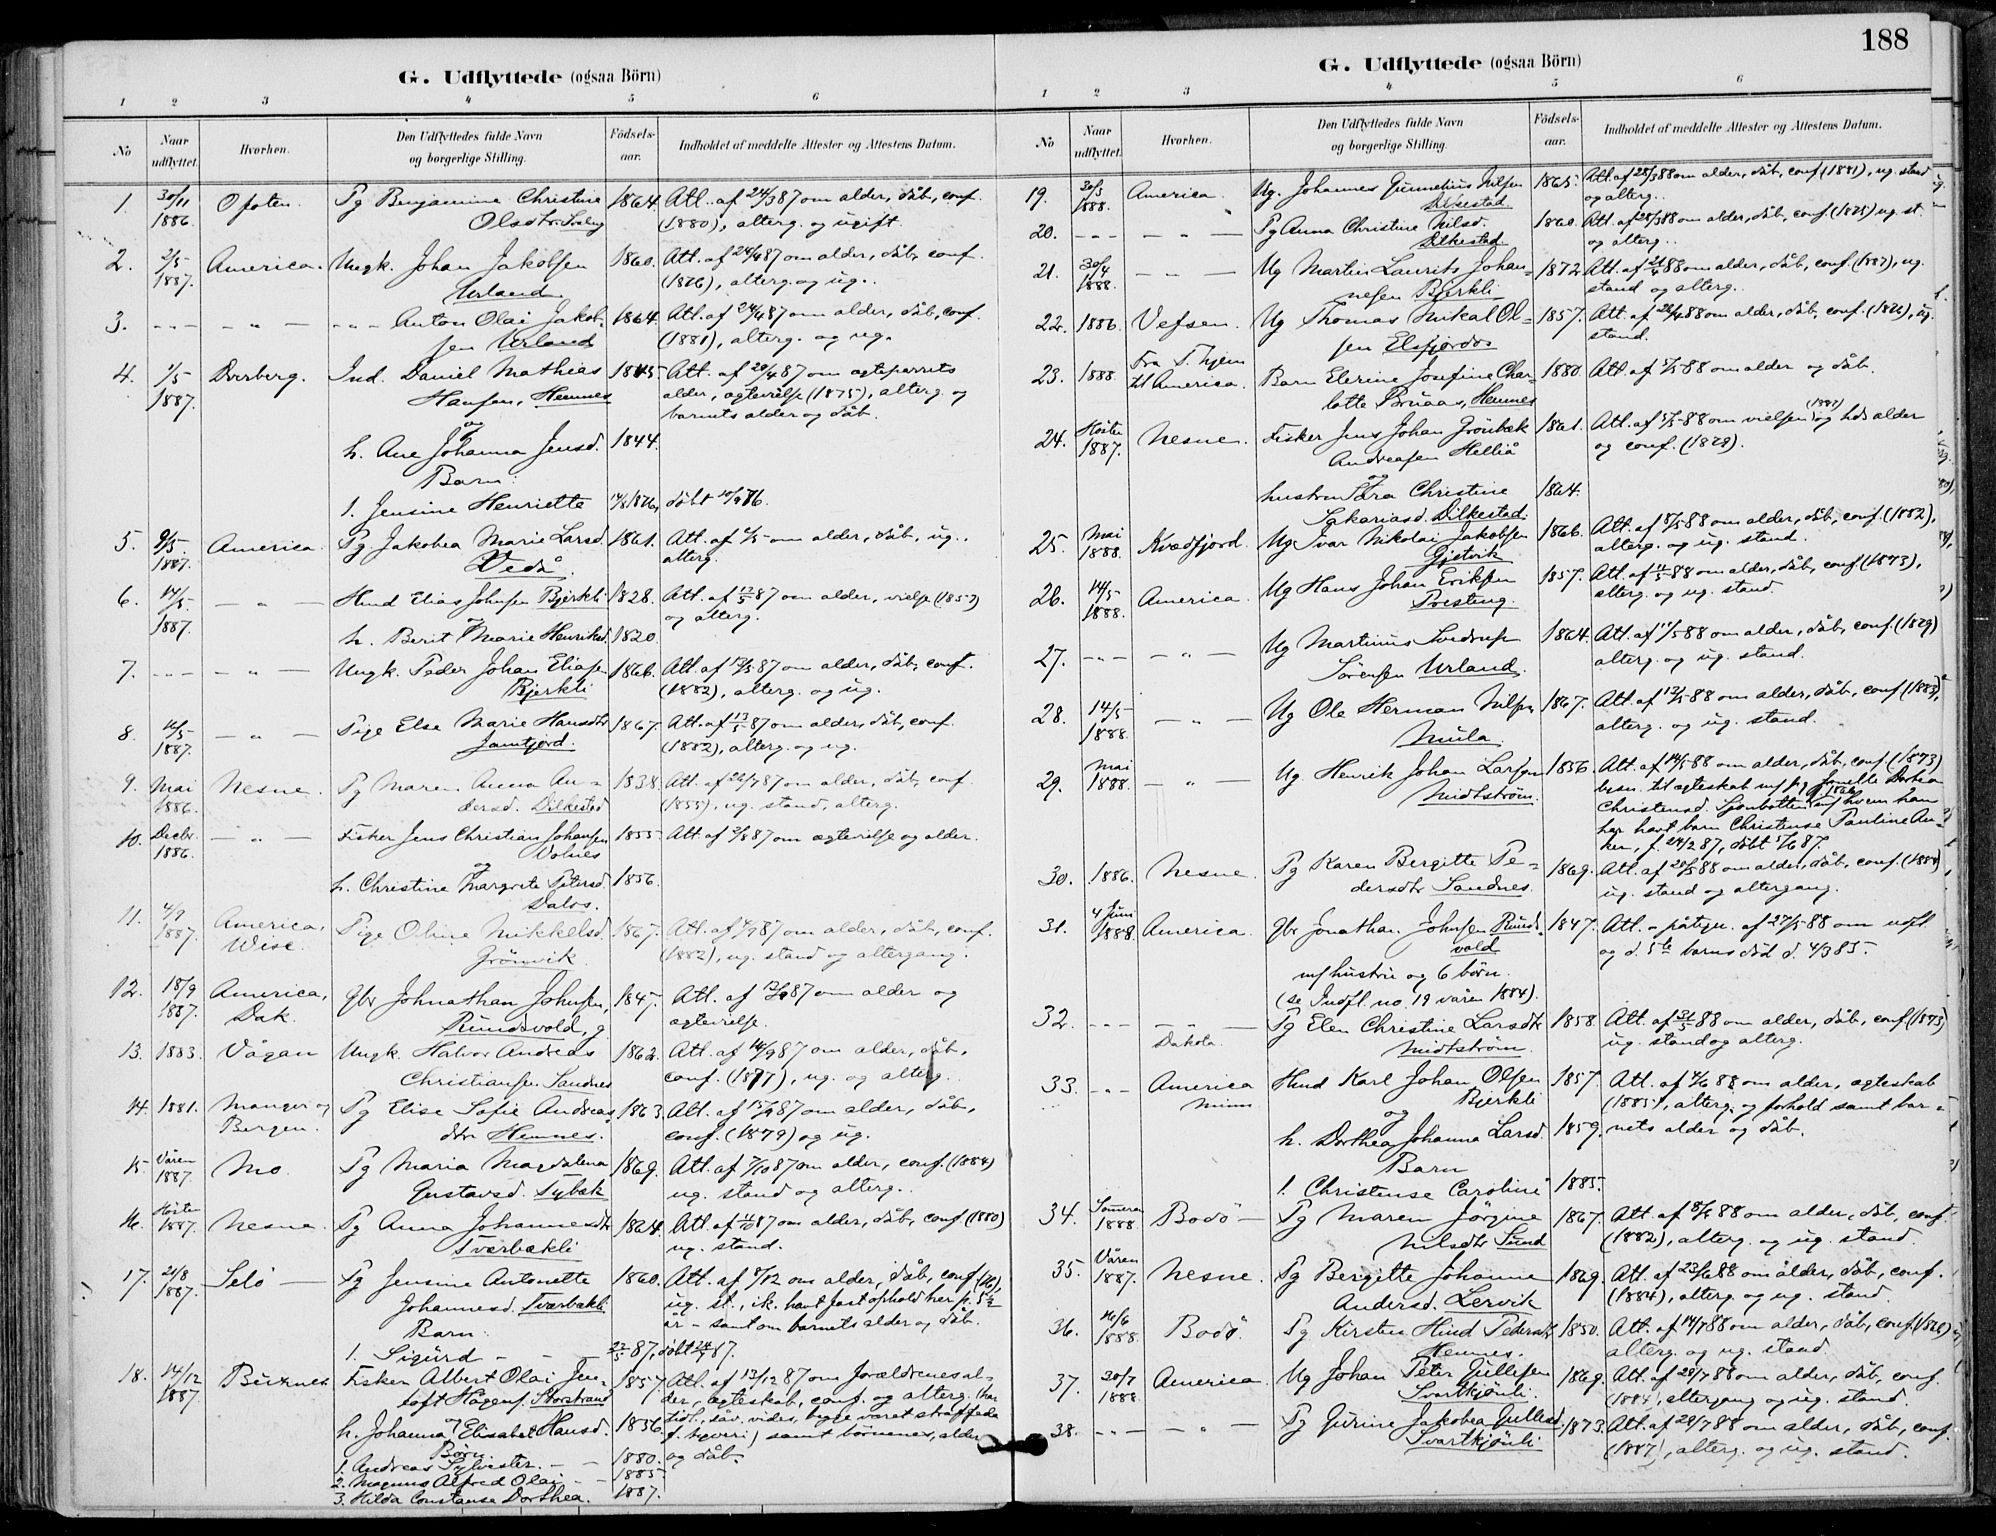 188
G. Udflyttede (ogsaa Börn)
1 2 3 4 5 6
No
Naar udflyttet.
Hvorhen.
Den Udflyttedes fulde Navn og borgerlige Stilling.
Födsels-aar.
Indholdet af meddelte Attester og Attestens Datum.
1. 30/11 1886 Ofoten. Pg Benjamine Christine 1864. Att. af 24/3 87 om alder, dåb, conf.
Olsdtr (1880), alterg. og ugift.
2. 2/5 1887. America. Ungk. Johan Jakobsen 1860. Att. af 24/4 87 om alder, dåb, conf.
Urland (1876), alterg. og ug.
3. - - - - " - - - - Anton Olai Jakob- 1864. Att. af 24/4 87 om alder, dåb, conf.
sen Urland (1881), alterg. og ug.
4. 1/5 1887. Dverberg. Ind. Daniel Mathias 1845 Att. af 28/4 87 om ægteparrets
Hansen, Hemnes alder, ægtevielse (1875), alterg. og
og barnets alder og dåb.
h. Ane Johanna Jensd. 1844.
Barn:
1. Jensine Henriette 14/8 1876, döbt 10/9 76.
5. 9/5 1887. America. Pg Jakobea Marie Larsd. 1861. Att. af 2/5 om alder, dåb, ug.,
Vedå. alterg.
6. 14/5 1887. - " - Hmd Elias Johnsen Bjerkli 1828. Att. af 12/5 87 om alder, vielse (1853)
og og alterg.
h. Berit Marie Henriksd. 1820.
7. - - - - " - Ungk. Peder Johan Eliasen 1866. Att. af 12/5 87 om alder, dåb, conf.
Bjerkli (1882), alterg. og ug.
8. 14/5 1887. - " - Pige Else Marie Hansdtr 1867. Att. af 13/5 87 om alder, dåb, conf.
Jamtjord. (1882), alterg. og ug.
9. Mai 1886. Nesne. Pg Maren Anna An- 1838. Att. af 22/7 87 om alder, dåb, conf
dersd. Dilkestad (1855), ug. stand, alterg.
10. Decbr. 1886. - " - Fisker Jens Christian Johansen 1855 Att. af 2/8 87 om ægtevielse og alder.
Volnes
og
h. Christine Margrete Petersd. 1856.
11. 4/9 1887. America, Pige Oline Mikkelsd. 1867. Att. af 2/9 87 om alder, dåb, conf.
Wisc. Grönvik. (1882), ug. stand og altergang.
12. 18/9 1887. America, Gbr Johnathan Johnsen, 1847. Att. af 12/9 87 om alder og
Dak. Rundsvold, g. ægtevielse.
13. 1883. Vågan Ungk. Halvor Andreas 1862. Att. af 14/9 87 om alder, dåb,
Christiansen Sandnes conf. (1877), ug. og alterg.
14. 1881. Manger og Pg Elise Sofie Andreas 1863. Att. af 15/9 87 om alder, dåb,
Bergen. dtr Hemnes. conf. (1879) og ug.
15. Våren 1887. Mo. Pg Maria Magdalena 1869. Att. af 7/10 87 om alder, conf. (1884)
Gustavsd. Sybæk ug. stand og alterg.
16. Hösten 1887. Nesne. Pg Anna Johannesdtr 1864. Att. af 11/10 87 om alder, dåb, conf. (1880)
Tværbækli ug. stand.
17. 21/8 1887. Selö - Pg Jensine Antonette 1860. Att. af 8/12 om alder, dåb, conf. (76),
Johannesd. Tværbækli ug. st., ik. havt fast ophold her p. 5 1/2
Barn: år - samt om barnets alder og dåb.
1. Sigurd - - 22/5 87, döbt 24/7 87.
18. 14/12 1887. Fisker Albert Olai Jen- 1857 Att. af 13/12 87 om forældrenes al-
toft Hagens. Storstrand der, ægteskab, conf. og alterg. (har
og
h. Johanna Elisabet Hansd. 1856. tidl., såv. vides, begge været straffede
Börn f. tyveri) samt börnenes, alder
1. Andreas Sylvester. - - 1880. og dåb.
2. Magnus Alfred Olai - - 1885
3. Hilda Constanse Dorthea. 1887.
G. Udflyttede (ogsaa Börn)
1 2 3 4 5 6
No
Naar udflyttet.
Hvorhen.
Den Udflyttedes fulde Navn og borgerlige Stilling.
Födsels-aar.
Indholdet af meddelte Attester og Attestens Datum.
19. 30/3 1888. America. Ug. Johannes Nilsen 1865. Att. af 28/3 88 om alder, dåb, conf. (1881), ug. stand
Dilkestad og alterg.
20. - - - - " - Pg Anna Christine Nilsd. 1860. Att. af 28/3 88 om alder, dåb, conf. (1875) ug. st.
Dilkestad og alterg.
21. 30/4 1888. - " - Ug Martin Laurits Johan- 1872. Att. af 21/4 88 om alder, dåb, conf. (1887), ug.
nesen Bjerkli stand og alterg.
22. 1886. Vefsen. Ug Thomas Mikal Ol- 1857. Att. af 28/4 88 om alder, dåb, conf. (1876), ug.
sen Elsfjorden stand.
23. 1888. fra T.hjem Barn Elerine Josefine Char- 1880. Att. af 5/5 88 om alder og dåb.
til America. lotte Bruaas, Hemnes
24. Hösten 1887. Nesne. Fisker Jens Johan Grönbæk 1861. Att. af 5/5 88 om vielsen (1887) og bds alder
Andreasen Helliå og conf. (1878).
og
hustru Sara Christine 1864.
Sakariasd. Dilkestad.
25. Mai 1888. Kvædfjord. Ug Ivar Nikolai Jakobsen 1866. Att. af 8/5 88 om alder, dåb, conf. (1882),
Gjetvik alterg. og ug. stand.
26. 14/5 1888. America. Ug Hans Johan Eriksen 1857. Att. af 11/5 88 om alder, dåb, conf (1873),
Presteng. alterg. og ug. stand.
27. - - - - " - Ug Martinius Sverdrup 1864. Att. af 11/5 88 om alder, dåb, conf. (1879)
Sörensen Urland. alterg. og ug. stand.
28. 14/5 1888. - " - Ug Ole Herman Nilsen 1867. Att. af 12/5 88 om alder, dåb, conf (1883),
Mula. alterg. og ug. stand.
29. Mai 1888. - " - Ug Henrik Johan Larsen 1856. Att. af 14/5 88 om alder, dåb, conf. (1873)
Midtström. besn. til ægteskab m/ pg Dorthea
Christensd. Sjonbotten m/ hvem han
har havt barn Christense Pauline An-
ker, f. 24/2 87, döbt 5/6 87.
30. 1886. Nesne. Pg Karen Bergitte Pe- 1869. Att. af 28/5 88 om alder, dåb, conf. (1884)
dersdtr Sandnes. ug. stand og altergang.
31. 4 Juni 1888. America. Gbr Jonathan Johnsen Runds- 1847. Att. - påtegn. af 27/5 88 om udfl.
vold og d. 5te barns död d. 4/3 85.
m/ hustru og 6 börn.
(se Indfl. no 19 våren 1884).
32. - - - - " - Pg Elen Christine Larsdtr 1858. Att. af 31/5 88 om alder, dåb, conf (1873)
Dakota. Midtström. ug. stand og alterg.
33. - - - America Hmd Karl Johan Olsen 1857. Att. af 4/6 88 om alder, ægteskab
Minn Bjerkli (1885), alterg. og forhold samt bar-
og nets alder og dåb.
h. Dorthea Johanna Larsd. 1859.
Barn
1. Christense Caroline 1885.
34. Somren 1888 Bodö - Pg Maren Jörgine 1867. Att. af 8/6 88 om alder, dåb, conf.
Nilsdtr Sund (1882), alterg. og ug. stand
35. Våren 1887. Nesne. Pg Bergitte Johanne 1869. Att. af 23/6 88 om alder, dåb, conf.
Andersd. Lervik (1884), alterg. og ug. stand.
36. 16/6 1888. Bodö. Pg Kirsten Hind Pedersdtr 1850. Att. af 14/7 88 om alder, dåb, conf. (1866)
Hemnes. alterg. og ug. stand.
37. 30/7 1888. America. Ug Johan Peter Gullesen 1869. Att. af 28/7 88 om alder, dåb, conf.
Svartkjönli. (1884, altergang og ug. stand.
38. - - - - " Pg Gurine Jakobea Gullesd. 1873. Att. af 28/7 88 om alder, dåb, conf.
Svartkjönli (1887), alterg. og ug. stand.